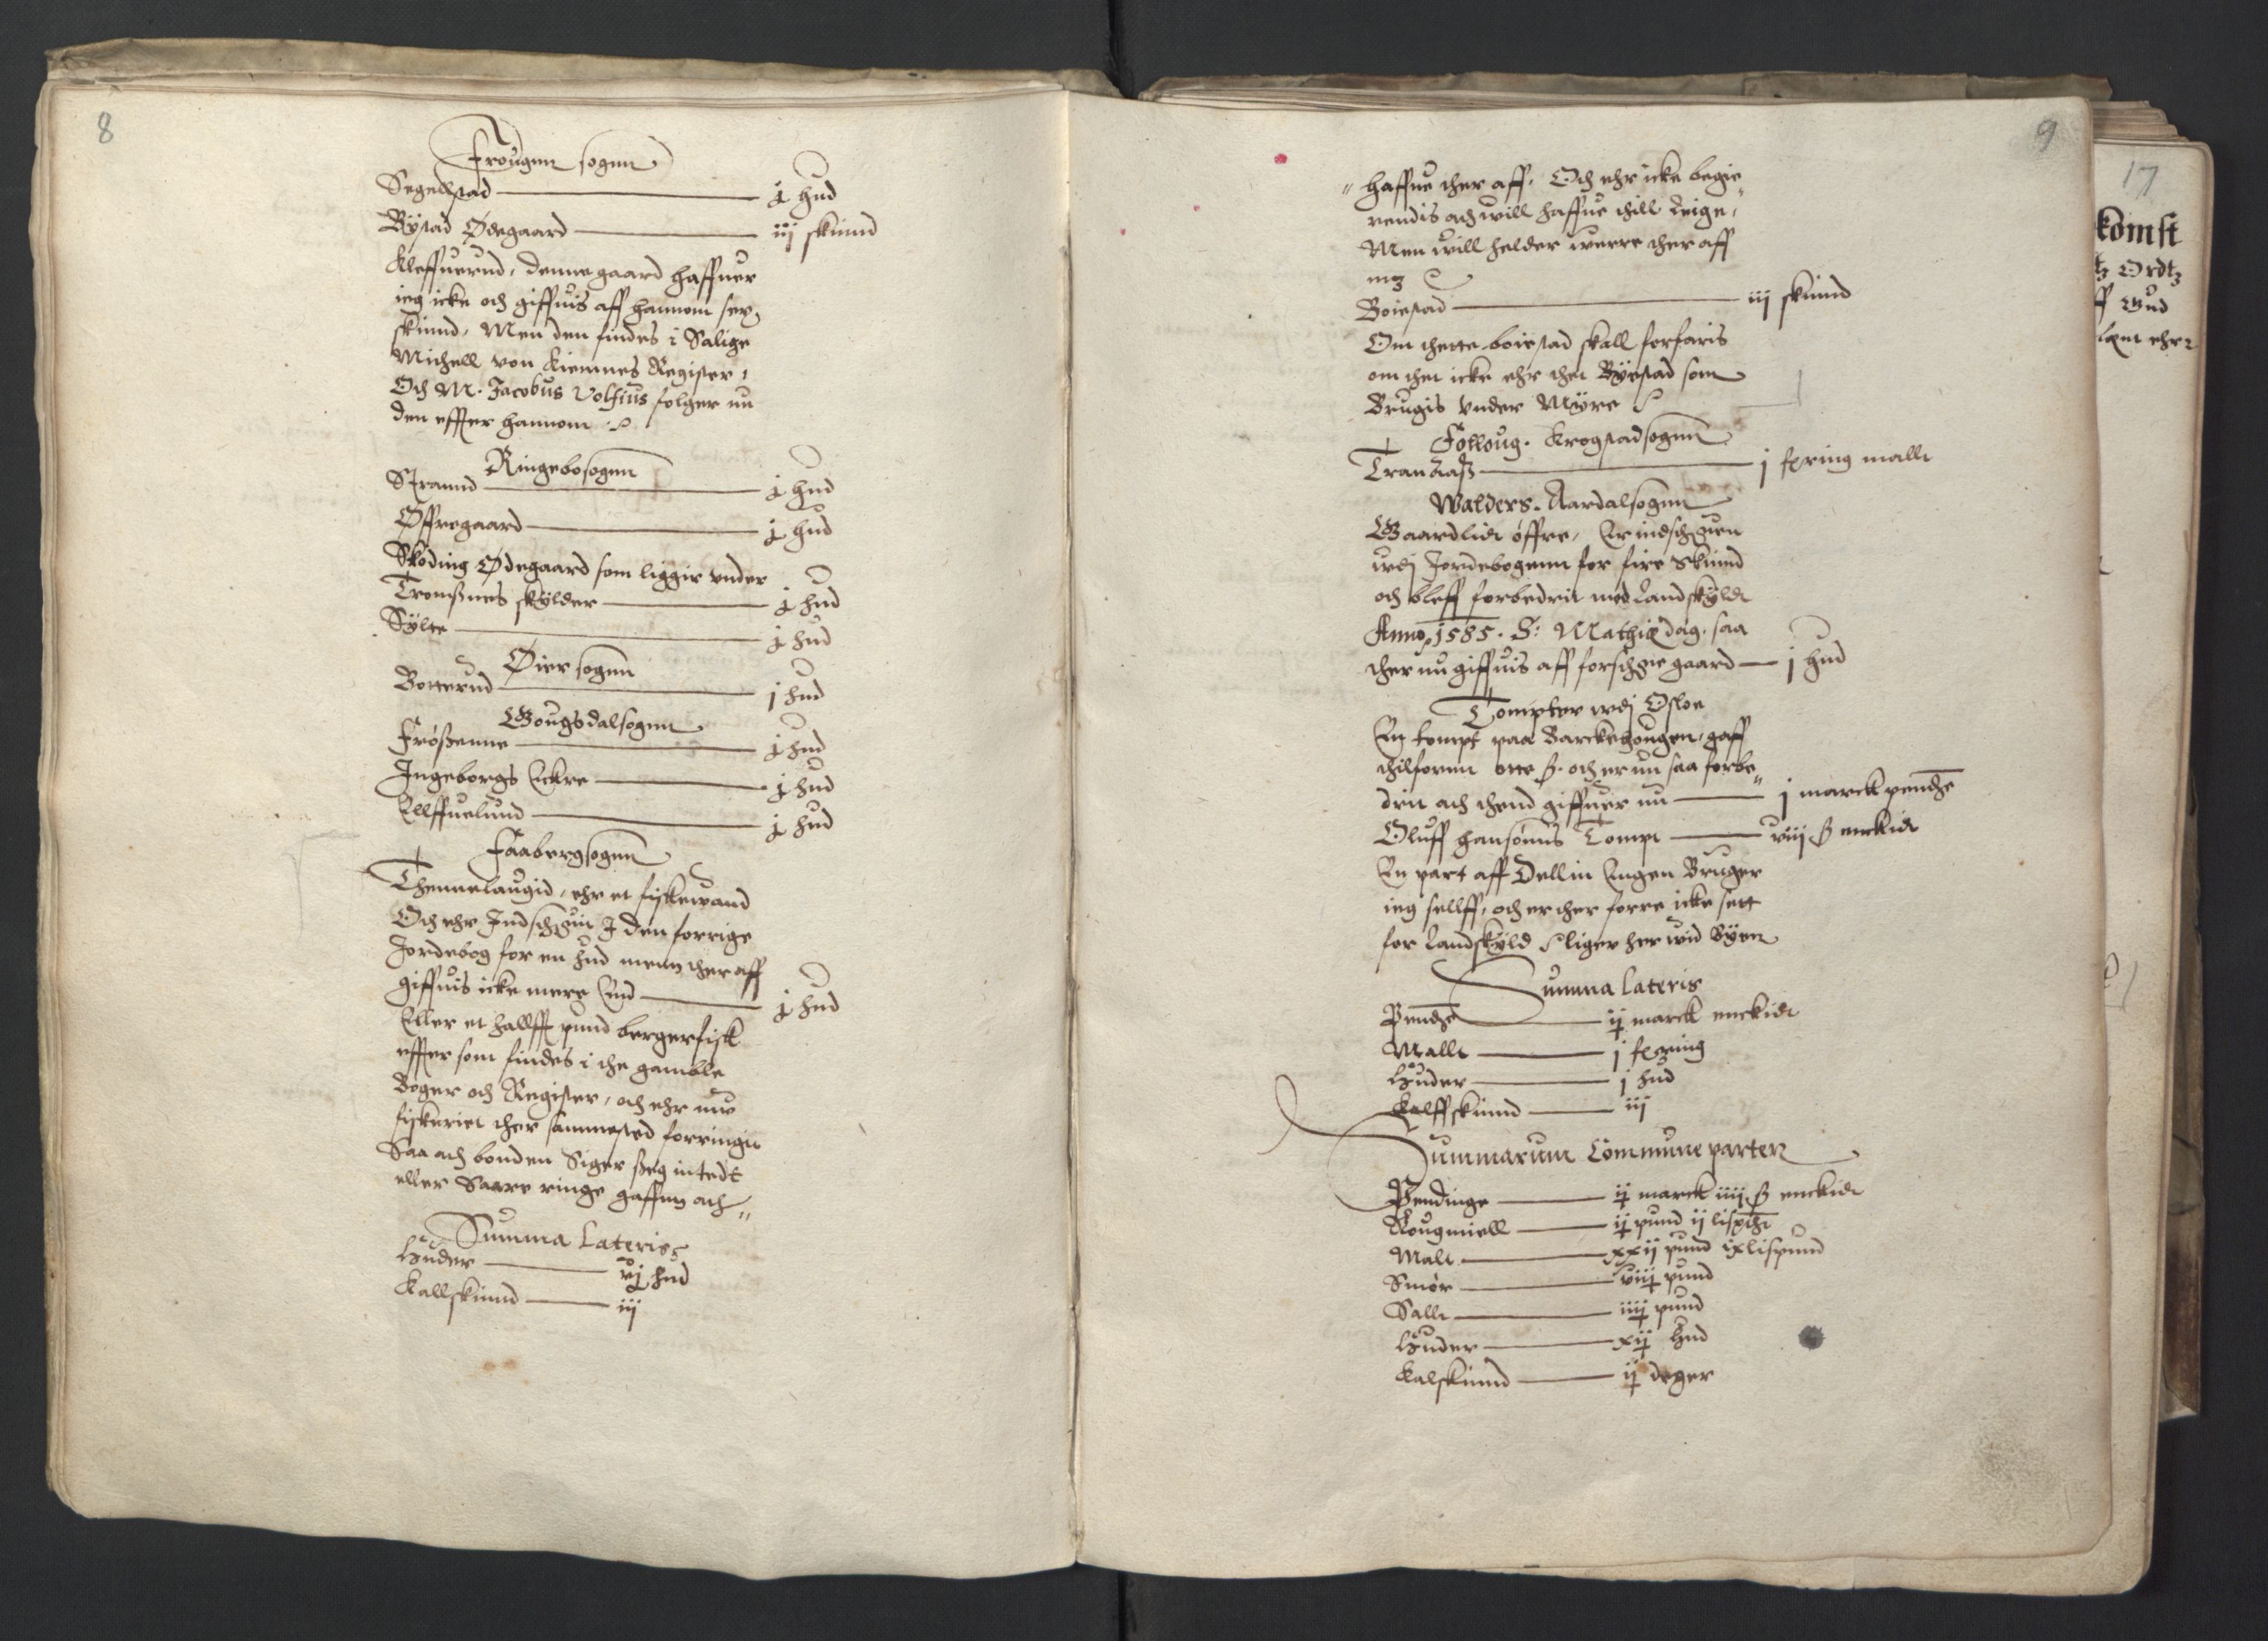 8
Frougnn sognn
Segellstad j hud
Bÿstad Ødegaard iij skinnd
Kleffuerud, denne gaard haffuer
ieg icke och giffuis aff hannom sex
skinnd, Men den findes i Salige
Michell von Kiemnes Register,
Och M. Jacobus Volfius folger nu
den effter hannom
Ringebosognn
Strannd j hud
Øffregaard j hud
Skoding Ødegaard som liggir vnder
Tromßnes skÿlder j hud
Sÿlte j hud
Øier sognn
Botterud j hud
Gougsdalsognn
Frößenne j hud
Ingeborgs Eckre j hud
Ellffuelund j hud
Faabergsognn
Thennelaugid, ehr et fiskewand
Och ehr Indschreuit I den forrige
Jordebog for en hud menn ther aff
giffuis icke mere End j hud
Eller et hallfft pund bergerfisk
effter som findes i the gamble
Bøger och Register, och ehr nu
fiskeriet ther sammested forringit
Saa ath bonden Siger seg intedt
eller Saare ringe gaffnn ath
Summa Lateris
Huder vj hud
Kallskinnd iij
9
haffue ther aff, Och ehr icke begie
rendis ath will haffue thill Leige,
Men will helder werre ther aff
mz
Boiestad iij skinnd
Om thette boiestad skall forfaris
om thet icke ehr thet Bÿestad som
Brugis vnder Mÿre
Folloug. Krogstadsognn
Tranaaß j fering mallt
Walders. Aardalsognn
Gaardlidt øffre, Er indschreuen
udj Jordebogenn for fire Skinnd
och bleff forbedrit med Landskÿldt
Anno 1585. S: Mathiæ dag. saa
ther nu giffuis aff forschreffne gaard j hud
Tompter udj Osloe
En tompt paa Barckehougen, gaff
thilfornn otte ß. och er nu saa forbe
drit ath thend giffuer nu j marck pendze
Oluff Hansönns Tompt viij ß enckidt
En part aff Dellin Engen Bruger
ieg sellff, och er ther forre icke sett
for Landskÿld liger her wid Bÿen
Summa Lateris
Pendze ij marck enckidt
Mallt j fering
Huder j hud
Kalffskinnd iij
Summarum Commune parten
Pendinge ij marck iiij ß enckidt
Rougmiell ij pund ij lispd
Malt xxij pund ix lispund
Smør viij pund
Sallt iiij pund
Huder xij hud
Kalskinnd ij deger
17
komst
Ordtz
ff Gud